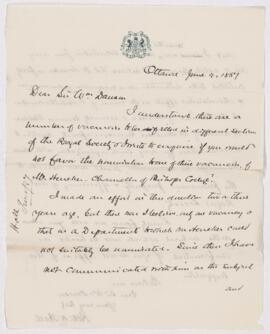 Ottawa June 4. 1887
Dear Sir Wm Dawson
I understand there are a
number of vacancies to be filled in different sections
of the Royal Society & I write to enquire if you would
not favor the nomination to one of these vacancies, of
Mr. Heneker Chancellor of Bishop's College
I made an effort in this direction two or three
years ago, but there was I believe, only one vacancy &
that in a Department to which Mr Heneker could
not suitably be nominated. Since then I have
not communicated with him on the subject
and